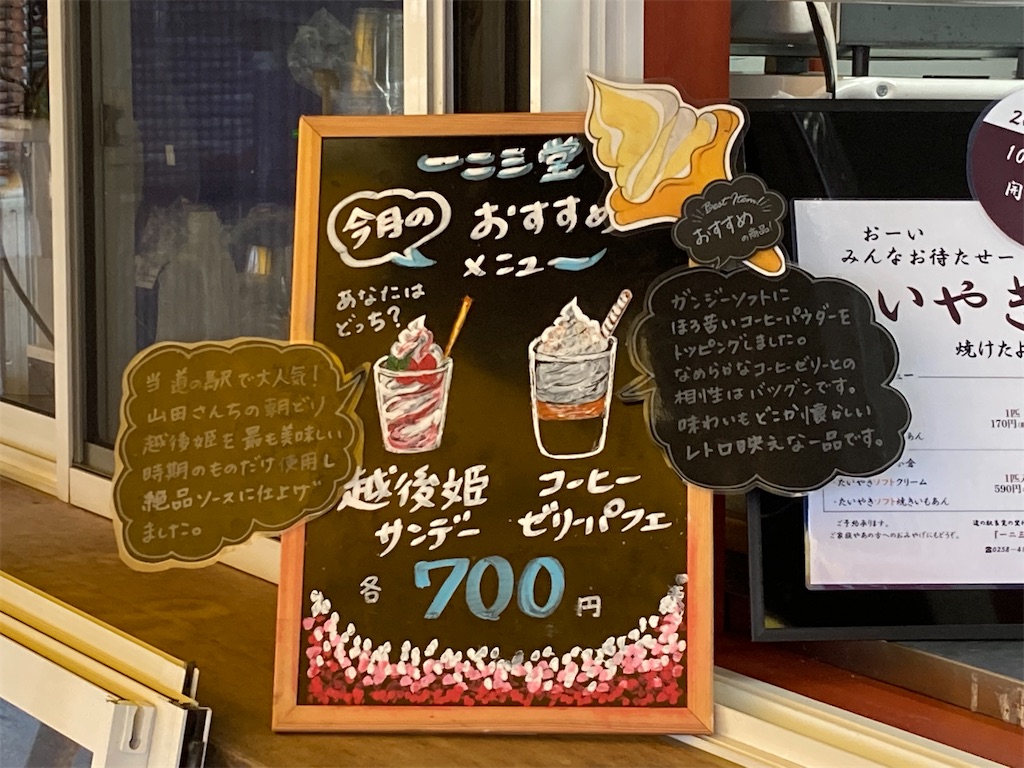 一二三堂
今月の
おすすめ
メニュー
あなたは
どっち?
当道の駅で大人気!
山田さんちの朝どり
越後姫を最も美味しい
時期のものだけ使用し
絶品ソースに仕上げ
ました。
越後姫
サンデー
コーヒー
ゼリーパフェ
各700円
Best Item!!
おすすめ
の商品!
ガンジーソフトに
ほろ苦いコーヒーパウダーを
トッピングしました。
なめらかなコーヒーゼリーとの
相性はバツグンです。
味わいもどこか懐かしい
レトロ映えな一品です。
おーい
みんなお待たせー
いやき
焼けたよ
1匹
170円
あん
の舎
・たいやきソフトクリーム
590円
・たいやきソフト焼きいもあん
ご予約承ります。
ご家族やあの方へのおみやげにもどうぞ。
『一二三
☎0258-4